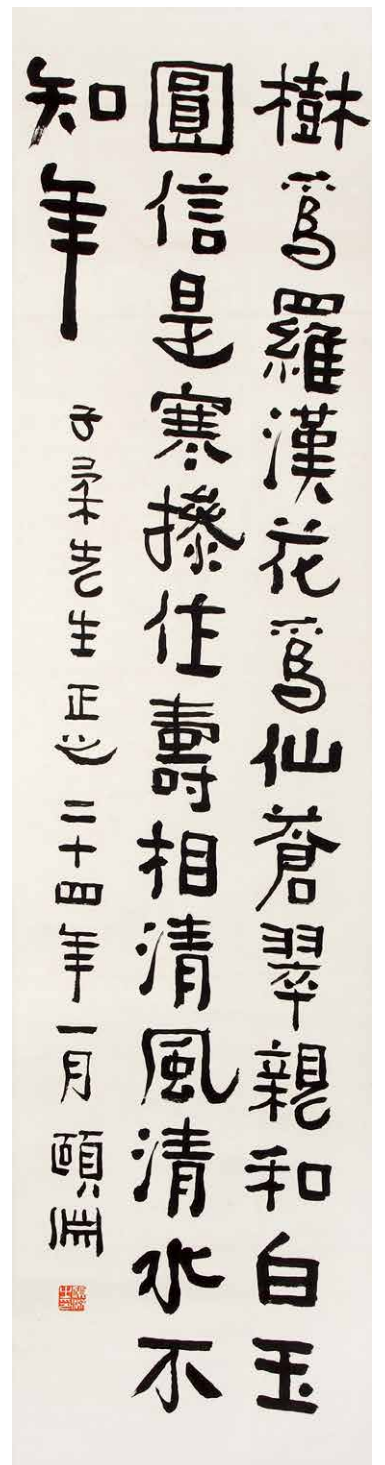 樹爲羅漢花爲仙蒼翠親和白玉
圓信是寒操住壽相清風清水不
知年
子柔先生正之二十四年一月頤淵